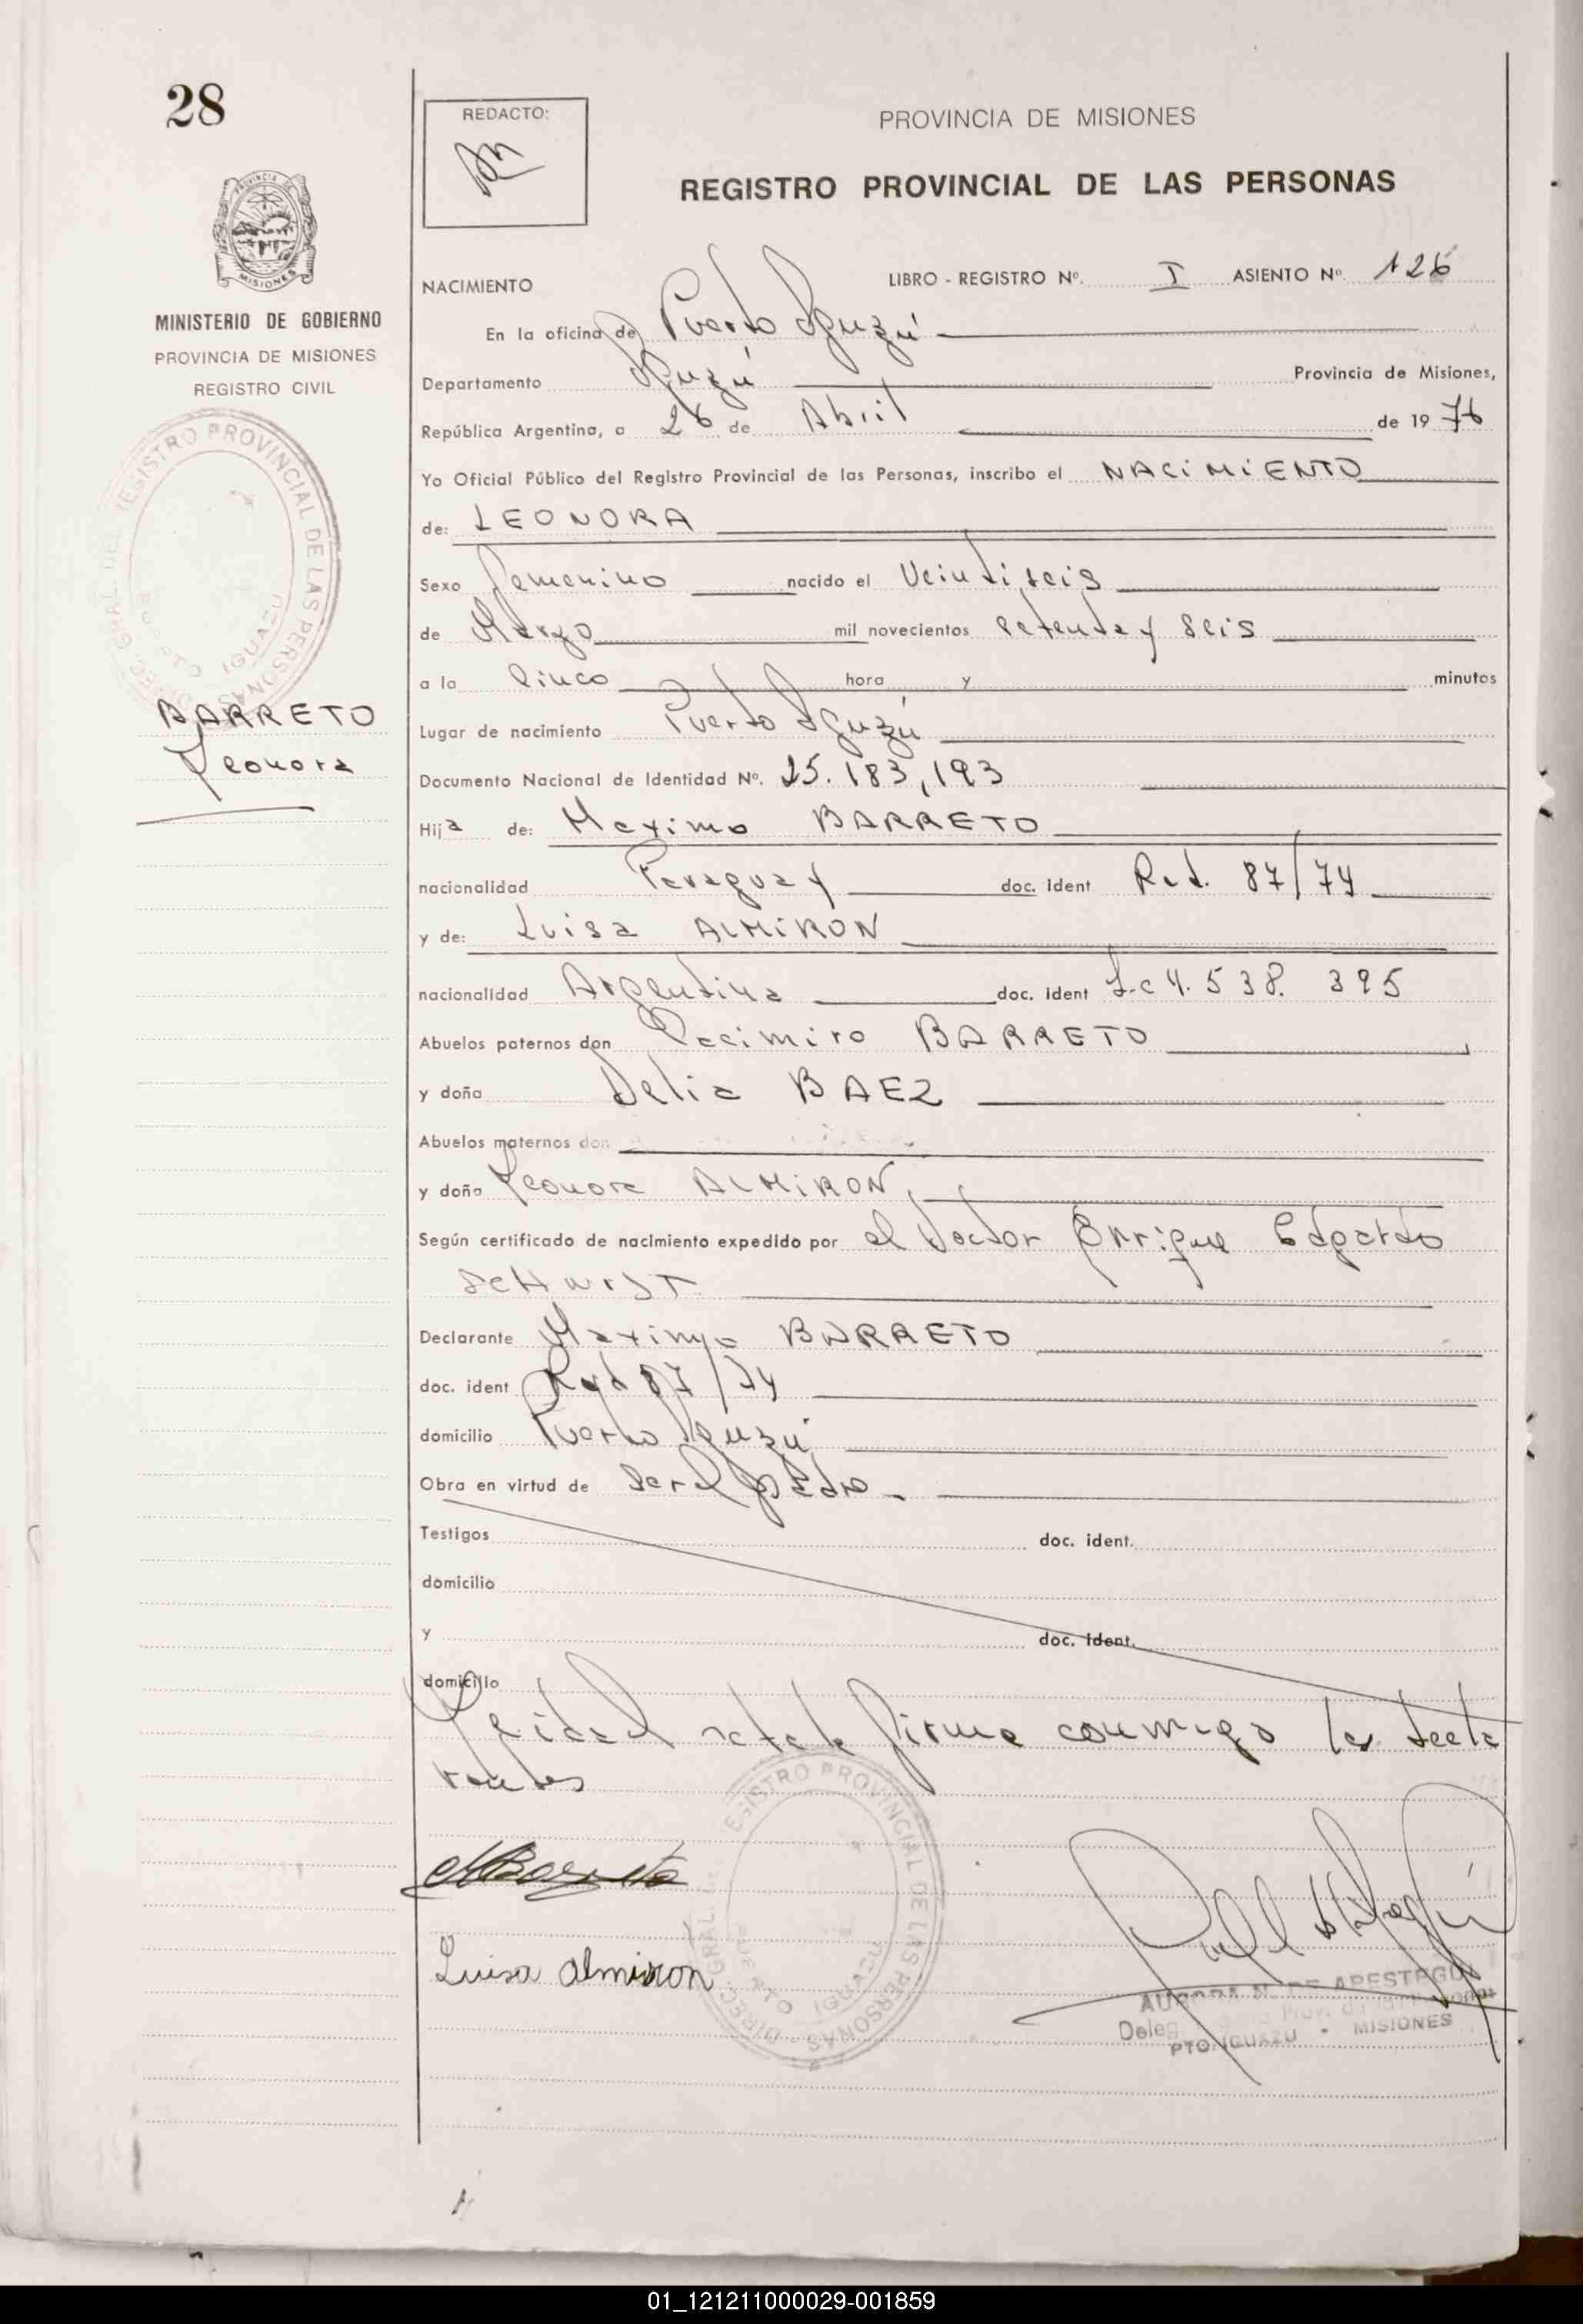 28
REDACTO:
PROVINCIA DE MISIONES
REGISTRO PROVINCIAL DE LAS PERSONAS
PROVINCIA DE MISIONES
MINISTERIO DE GOBIERNO
PROVINCIA DE MISIONES
REGISTRO CIVIL
DIREC. GRAL. DEL REGISTRO PROVINCIAL DE LAS PERSONAS
PUERTO IGUAZU
BARRETO
Leonora
NACIMIENTO LIBRO - REGISTRO Nº. I ASIENTO Nº. 126
En la oficina de Puerto Iguazú
Departamento Iguazú Provincia de Misiones,
República Argentina, a 26 de Abril de 19 76
Yo Oficial Público del Registro Provincial de las Personas, inscribo el NACIMIENTO
de: LEONORA
Sexo Femenino nacido el Veintiseis
de Marzo mil novecientos setenta y seis
a la Cinco hora y minutos
Lugar de nacimiento Puerto Iguazú
Documento Nacional de Identidad Nº. 25.183,193
Hija de: Maximo BARRETO
nacionalidad Paraguay doc. ident Rad. 87/74
y de: Luisa ALMIRON
nacionalidad Argentina doc. ident L.c 4.538.395
Abuelos paternos don BARRETO
y doña Delia BAEZ
Abuelos maternos don
y doña Leonora ALMIRON,
Según certificado de nacimiento expedido por el Doctor Enrique Edgardo
Declarante Maximo BARRETO
doc. ident Rad 87/74
domicilio Puerto Iguazú
Obra en virtud de ser el Padre.
Testigos doc. ident.
domicilio
y doc. ident.
domicilio
Leida el acta la firma conmigo los decla
rantes
MBarreto
Luisa almiron
DIREC. GRAL. DEL REGISTRO PROVINCIAL DE LAS PERSONAS
PUERTO IGUAZU
AURORA N. DE APESTEGUI
PTO. IGUAZU - MISIONES
01_121211000029-001859